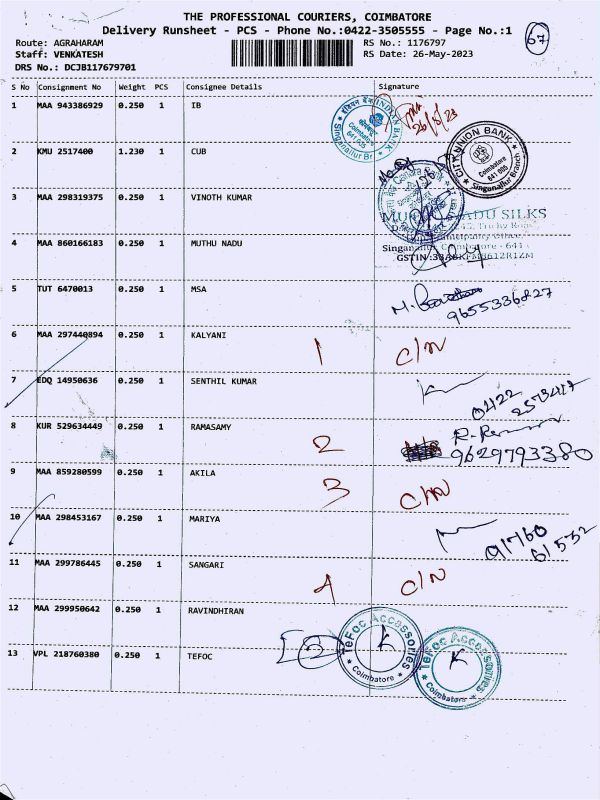 THE PROFESSIONAL COURIERS, COIMBATORE
Delivery Runsheet - PCS - Phone No.:0422-3505555 - Page No.:1
67
Route: AGRAHARAM
RS No.: 1176797
Staff: VENKATESH
RS Date: 26-May-2023
DRS No.: DCJB117679701
S No Consignment No Weight PCS Consignee Details Signature
1 MAA 943386929 0.250 1 IB
INDIAN BANK
Coimbatore
641 005
Singanallur Br
26/5/23
2 KMU 2517400 1.230 1 CUB
CITY UNION BANK
Coimbatore
641 005
Singanallur Branch
3 MAA 298319375 0.250 1 VINOTH KUMAR
NADU SILKS
4 MAA 860166183 0.250 1 MUTHU NADU
Coimbatore - 641
5 TUT 6470013 0.250 1 MSA
9655336827
6 MAA 297440894 0.250 1 KALYANI 1 C/N
7 EDQ 14950636 0.250 1 SENTHIL KUMAR
0422
2573417
8 KUR 529634449 0.250 1 RAMASAMY 2
9629793380
9 MAA 859280599 0.250 1 AKILA 3 C/N
10 MAA 298453167 0.250 1 MARIYA
91760
61532
11 MAA 299786445 0.250 1 SANGARI 4 C/N
12 MAA 299950642 0.250 1 RAVINDHIRAN
TeFoc Accessories
K
Coimbatore
13 VPL 218760380 0.250 1 TEFOC
TeFoc Accessories
K
Coimbatore